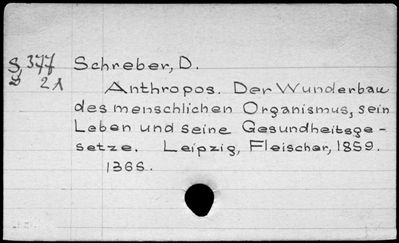 S, 377 Schreber, D.
21
Anthropos. Der Wunderbau
des menschlichen Organismus, sein
Leben und seine Gesundheitsge-
setze. Leipzig, Fleischer, 1859.
1366.